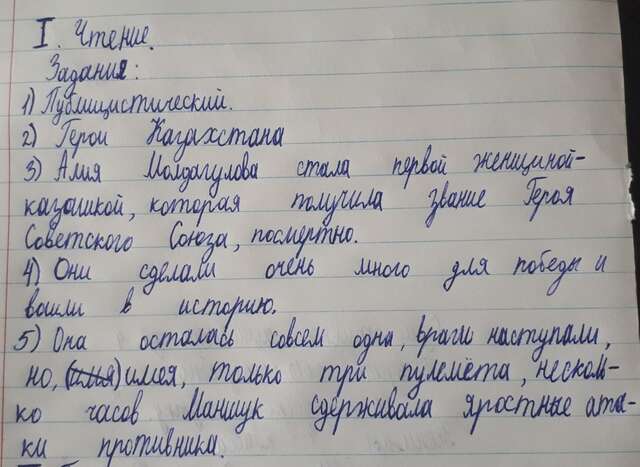 I. Чтение.
Задания:
1) Публицистический.
2) Герои Казахстана
3) Алия Молдагулова стала первой женщиной-
казашкой, которая получила звание Героя
Советского Союза, посмертно.
4) Они сделали очень много для победы и
вошли в историю.
5) Она осталась совсем одна, враги наступали,
но, (имея) имея, только три пулемёта, несколь-
ко часов Маншук сдерживала яростные ата-
ки противника.